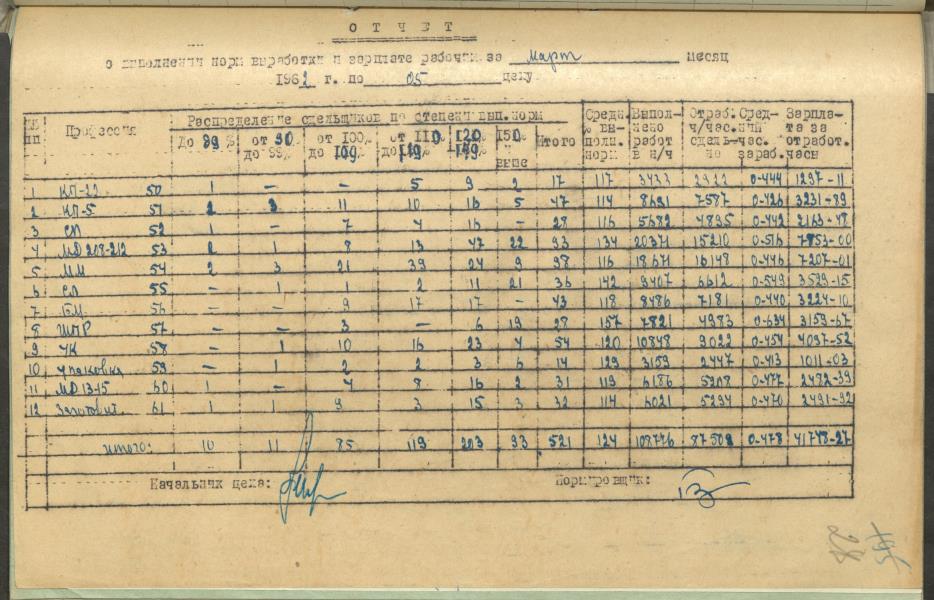 ОТЧЕТ
о выполнении норм выработки и зарплате рабочих за март месяц
1962 г. по 05 цеху
№№ пп Профессия Распределение сдельщиков по степени вып.норм Средн. % вы- полн. норм Выпол- нено работ в н/ч Отраб. ч/час. сдель- но Сред- ний час. зараб. Зарпла- та за отработ. часы
До 89 % от 90 до 99% от 100% до 109 от 110 до 119% 120 149% 150% и выше Итого
1 КП-22 50 1 — — 5 9 2 17 117 0-444 1297-11
2 КП-5 51 2 3 11 10 16 5 47 114 8691 7587 0-426 3231-89
3 СП 52 1 — 7 4 16 — 28 116 5682 4895 0-442 2163-48
4 МД 208-212 53 2 1 8 13 47 22 93 134 20371 15210 0-516 7853-00
5 ММ 54 2 3 21 39 24 9 98 116 18671 16148 0-446 7207-01
6 СЛ 55 — 1 1 2 11 21 36 142 9407 6612 0-549 3629-15
7 БЦ 56 — — 9 17 17 — 43 118 8486 7181 0-440 3224-10
8 ШПР 57 — — 3 — 6 19 28 157 7821 4983 0-634 3159-67
9 ЧК 58 — 1 10 16 23 4 54 120 10848 9022 0-454 4097-52
10 упаковка 59 — 1 2 2 3 6 14 129 3159 2447 0-413 1011-03
11 МД 13-15 60 1 — 4 8 16 2 31 119 6186 5208 0-477 2482-39
12 Заготовит. 61 1 1 9 3 15 3 32 114 6021 5294 0-470 2491-92
итого: 10 11 85 119 203 93 521 124 108776 87502 0-478 41748-27
Начальник цеха: Нормировщик: